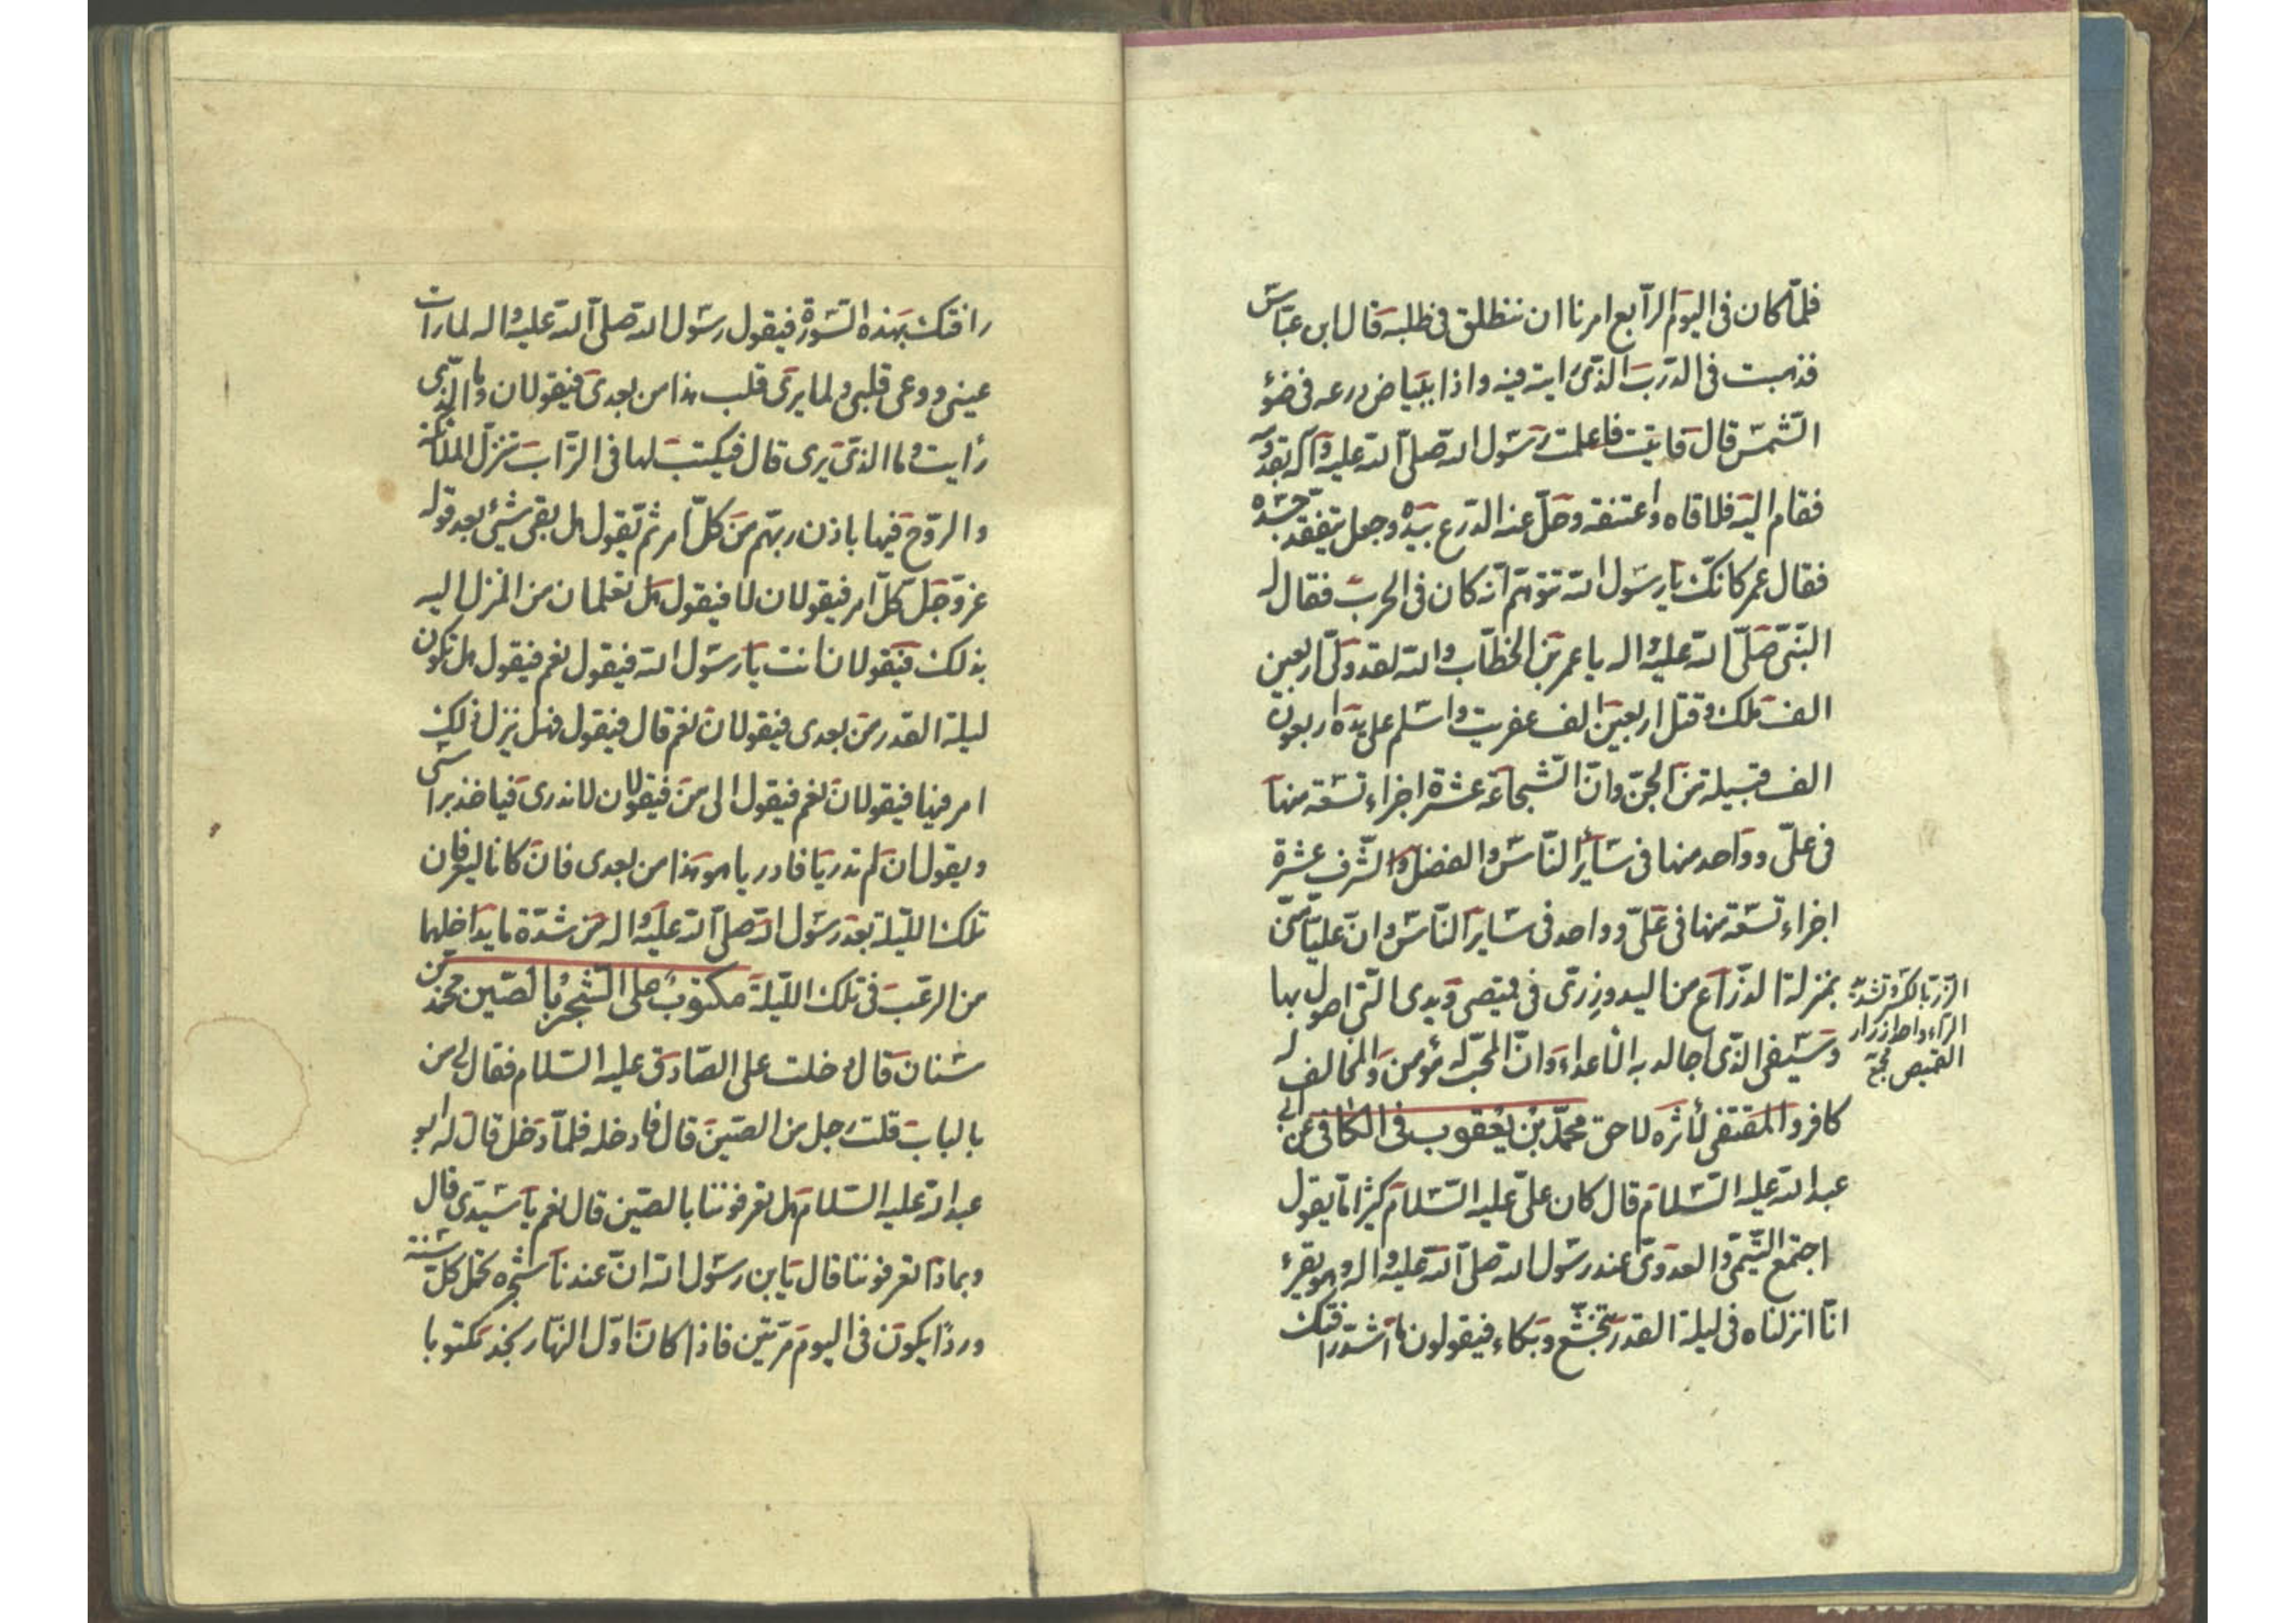 فلمّا كان فى اليوم الرّابع امرنا ان ننطلق فى طلبه قال ابن عبّاس
فذهبت فى الدّرب الذى رايته فيه واذا ببياض درعه فى ضوٕ
الشّمس قال فاتيت فاعلمت رسول الله صلّى الله عليه وآله بقدومه
فقام اليه فلاقاه واعتنقه وحلّ عنه الدّرع بيده وجعل يتفقد جسده
فقال عمر كانّك يا رسول الله تتوهّم انّه كان فى الحرب فقال له
النّبىّ صلّى الله عليه واله يا عمر بن الخطّاب والله لقد ولّى اربعين
الف ملك وقتل اربعين الف عفريت واسلم على يده اربعون
الف قبيلة من الجنّ وانّ الشّجاعة عشرة اجزاء تسعة منها
فى علىّ وواحد منها فى سائر النّاس والفضل والشّرف عشرة
اجزاء تسعة منها فى علىّ وواحد فى ساير النّاس وانّ عليّا منّى
بمنزلة الذّراع من اليد وزرّى فى قميصى ويدى التى اصول بها
وسيفى الذّى اجالد به الأعداء وانّ المحبّ له مؤمن والمخالف له
كافر والمقتفى لأثره لاحق محمّد بن يعقوب فى الكافى عن ابى
عبد الله عليه السّلام قال كان علىّ عليه السّلام كثيرا ما يقول
اجتمع التّيمىّ والعدوىّ عند رسول الله صلّى الله عليه واله وهو يقرء
انّا انزلناه فى ليلة القدر بتخشّع وبكاء فيقولون ما اشدّ رافتك
الزّرّ بالكسر وتشديد
الرّاء واحد ازرار
القميص مجمع
رافتك بهذه السّورة فيقول رسول الله صلّى الله عليه واله لما رات
عينى ووعى قلبى ولما يرى قلب هذا من بعدى فيقولان وما الذّى
رأيت وما الذى يرى قال فيكتب لهما فى التّراب تنزّل الملائكة
والرّوح فيها باذن ربهّم من كلّ امر ثم يقول هل بقى شئ بعد قوله
عزّوجلّ كلّ امر فيقولان لا فيقول هل تعلمان من المنزل اليه
بذلك فيقولان انت يا رسول الله فيقول نعم فيقول هل تكون
ليلة القدر من بعدى فيقولان نعم قال فيقول فهل ينزل ذلك
امر فيها فيقولان نعم فيقول الى من فيقولان لا ندرى فياخذ براسى
ويقول ان لم تدريا فادريا هو هذا من بعدى فان كانا ليعرفان
تلك اللّيلة بعد رسول الله صلّى الله عليه واله من شدّة ما يداخلهما
من الرعب فى تلك اللّيلة مكتوب على الشّجر بالصّين محمّد بن
سنان قال دخلت على الصّادق عليه السّلام فقال لى من
بالباب قلت رجل من الصّين قال فادخله فلمّا دخل قال له ابو
عبد الله عليه السّلام هل تعرفوننا بالصّين قال نعم يا سيّدى قال
وبماذا تعرفوننا قال يابن رسول الله انّ عندنا شجره تحمل كلّ سنة
وردًا يكون فى اليوم مرّتين فاذا كان اوّل النّهار نجد مكتوبا